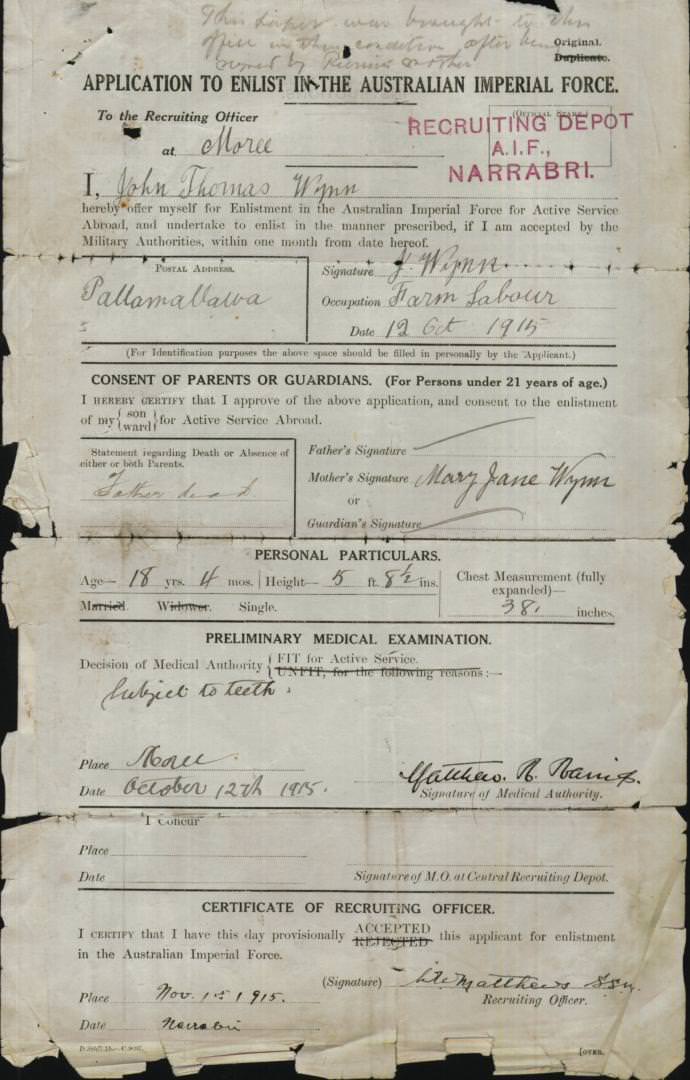 This paper was brought to this
office in this condition after being
signed by mother
Original.
Duplicate.
APPLICATION TO ENLIST IN THE AUSTRALIAN IMPERIAL FORCE.
To the Recruiting Officer
at Moree
(OFFICIAL STAMP.)
RECRUITING DEPOT
A.I.F.,
NARRABRI.
I, John Thomas Wynn
hereby offer myself for Enlistment in the Australian Imperial Force for Active Service
Abroad, and undertake to enlist in the manner prescribed, if I am accepted by the
Military Authorities, within one month from date hereof.
POSTAL ADDRESS.
Pallamallawa
Signature J. Wynn
Occupation Farm Labour
Date 12 Oct 1915
(For Identification purposes the above space should be filled in personally by the Applicant.)
CONSENT OF PARENTS OR GUARDIANS. (For Persons under 21 years of age.)
I HEREBY CERTIFY that I approve of the above application, and consent to the enlistment
of my { son
ward } for Active Service Abroad.
Statement regarding Death or Absence of
either or both Parents.
Father dead
Father's Signature
Mother's Signature Mary Jane Wynn
or
Guardian's Signature
PERSONAL PARTICULARS.
Age— 18 yrs. 4 mos. Height— 5 ft. 8½ ins.
Married. Widower. Single.
Chest Measurement (fully
expanded)—
38 inches.
PRELIMINARY MEDICAL EXAMINATION.
Decision of Medical Authority { FIT for Active Service.
UNFIT, for the following reasons :—
Subject to teeth.
Place Moree
Date October 12th 1915.
Matthew R.
Signature of Medical Authority.
I Concur
Place
Date
Signature of M.O. at Central Recruiting Depot.
CERTIFICATE OF RECRUITING OFFICER.
I CERTIFY that I have this day provisionally ACCEPTED
REJECTED this applicant for enlistment
in the Australian Imperial Force.
(Signature) Matthews
Recruiting Officer.
Place Nov. 1st 1915.
Date Narrabri
[OVER.